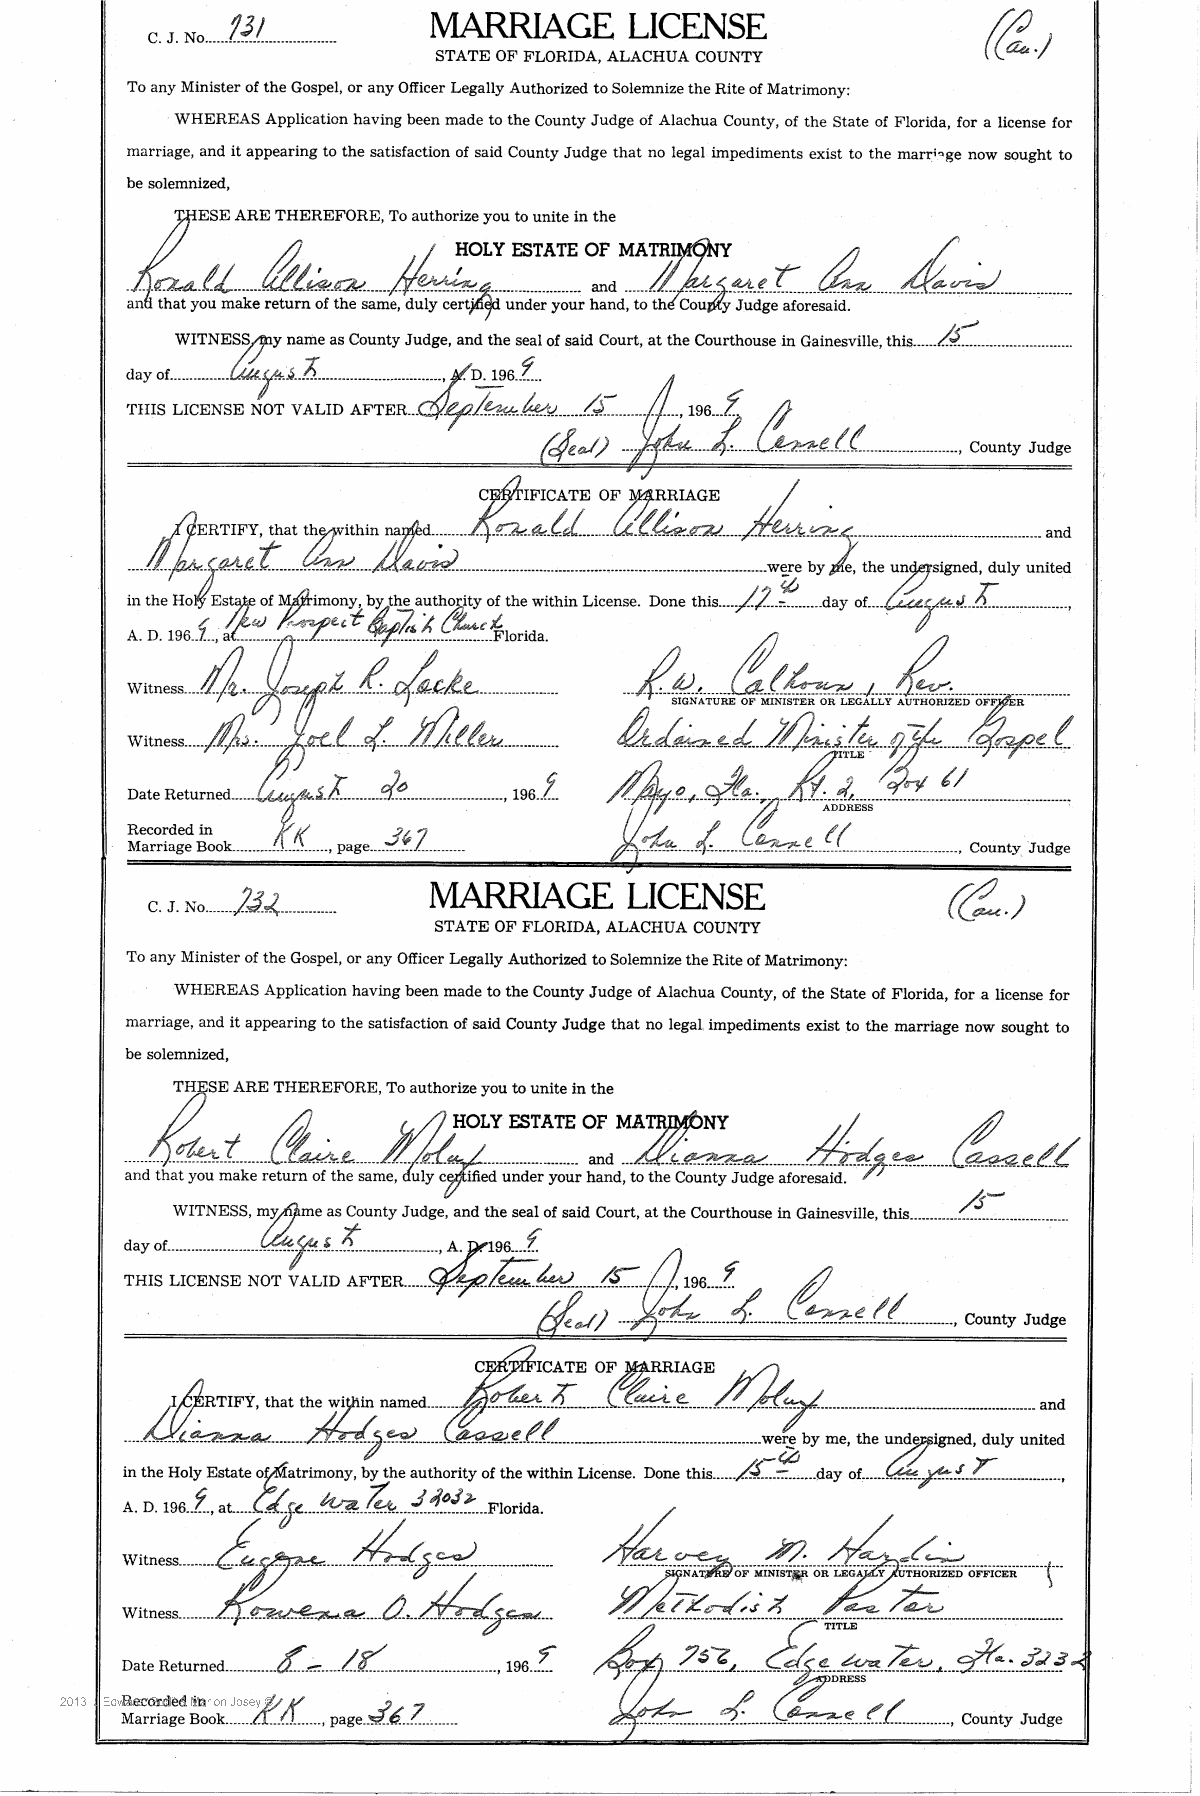 C. J. No. 731
MARRIAGE LICENSE
(Cau.)
STATE OF FLORIDA, ALACHUA COUNTY
To any Minister of the Gospel, or any Officer Legally Authorized to Solemnize the Rite of Matrimony:
WHEREAS Application having been made to the County Judge of Alachua County, of the State of Florida, for a license for
marriage, and it appearing to the satisfaction of said County Judge that no legal impediments exist to the marriage now sought to
be solemnized,
THESE ARE THEREFORE, To authorize you to unite in the
HOLY ESTATE OF MATRIMONY
Ronald Allison Herring and Margaret Ann Davis
and that you make return of the same, duly certified under your hand, to the County Judge aforesaid.
WITNESS, my name as County Judge, and the seal of said Court, at the Courthouse in Gainesville, this 15
day of August, A. D. 196 9
THIS LICENSE NOT VALID AFTER September 15, 196 9
(Seal) John L. Connell, County Judge
CERTIFICATE OF MARRIAGE
I CERTIFY, that the within named Ronald Allison Herring and
Margaret Ann Davis were by me, the undersigned, duly united
in the Holy Estate of Matrimony, by the authority of the within License. Done this 17th day of August,
A. D. 196 9, at New Prospect Baptist Church Florida.
Witness Mr. Joseph R. Locke R. W. Calhoun, Rev.
SIGNATURE OF MINISTER OR LEGALLY AUTHORIZED OFFICER
Witness Mrs. Joel L. Miller Ordained Minister of the Gospel
TITLE
Date Returned August 20, 196 9 Mayo, Fla., Rt. 2, Box 61
ADDRESS
Recorded in
Marriage Book KK, page 367 John L. Connell, County Judge
C. J. No. 732
MARRIAGE LICENSE
(Cau.)
STATE OF FLORIDA, ALACHUA COUNTY
To any Minister of the Gospel, or any Officer Legally Authorized to Solemnize the Rite of Matrimony:
WHEREAS Application having been made to the County Judge of Alachua County, of the State of Florida, for a license for
marriage, and it appearing to the satisfaction of said County Judge that no legal impediments exist to the marriage now sought to
be solemnized,
THESE ARE THEREFORE, To authorize you to unite in the
HOLY ESTATE OF MATRIMONY
Robert Claire and Dianna Hodges Cassell
and that you make return of the same, duly certified under your hand, to the County Judge aforesaid.
WITNESS, my name as County Judge, and the seal of said Court, at the Courthouse in Gainesville, this 15
day of August, A. D. 196 9
THIS LICENSE NOT VALID AFTER September 15, 196 9
(Seal) John L. Connell, County Judge
CERTIFICATE OF MARRIAGE
I CERTIFY, that the within named Robert Claire and
Dianna Hodges Cassell were by me, the undersigned, duly united
in the Holy Estate of Matrimony, by the authority of the within License. Done this 15th day of August,
A. D. 196 9, at Edgewater 32032 Florida.
Witness Eugene Hodges Harvey M. Hardin
SIGNATURE OF MINISTER OR LEGALLY AUTHORIZED OFFICER
Witness Rowena O. Hodges Methodist Pastor
TITLE
Date Returned 8-18, 196 9 Box 756, Edgewater, Fla. 3232
ADDRESS
Recorded in
Marriage Book KK, page 367 John L. Connell, County Judge
2013